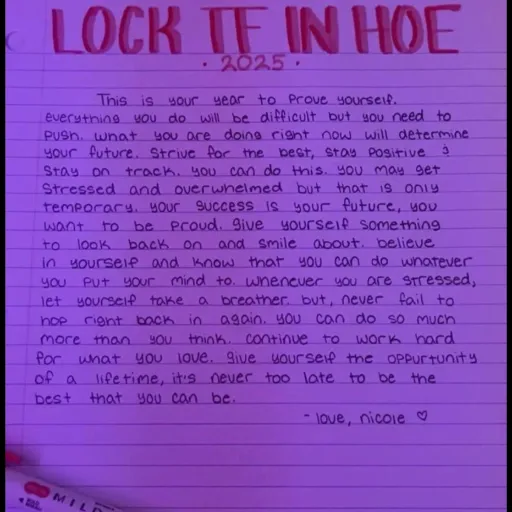 LOCK TF IN HOE
· 2025 ·
This is your year to prove yourself.
everything you do will be difficult but you need to
push. what you are doing right now will determine
your future. strive for the best, stay positive &
stay on track. you can do this. you may get
stressed and overwhelmed but that is only
temporary. your success is your future, you
want to be proud. give yourself something
to look back on and smile about. believe
in yourself and know that you can do whatever
you put your mind to. whenever you are stressed,
let yourself take a breather. but, never fail to
hop right back in again. you can do so much
more than you think. continue to work hard
for what you love. give yourself the oppurtunity
of a lifetime, it's never too late to be the
best that you can be.
- love, nicole ♡
MILD